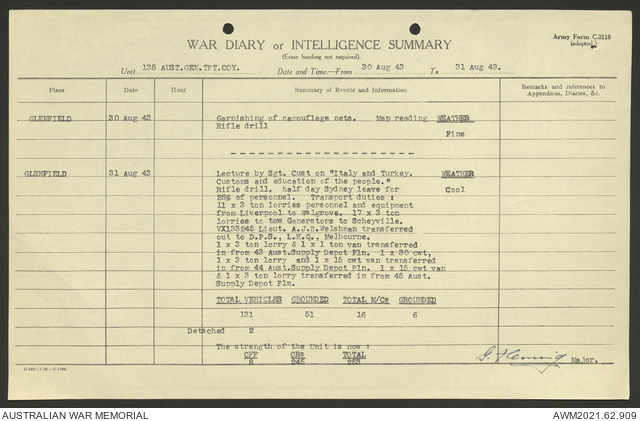 Army Form C.2118
(adapted)
WAR DIARY or INTELLIGENCE SUMMARY
(Erase heading not required).
Unit 135 AUST.GEN.TPT.COY. Date and Time.—From 30 Aug 43 To 31 Aug 43.
Place Date Hour Summary of Events and Information Remarks and references to Appendices, Diaries, &c.
GLENFIELD 30 Aug 43 Garnishing of camouflage nets. Map reading WEATHER
Rifle drill
Fine
GLENFIELD 31 Aug 43 Lecture by Sgt. Cust on "Italy and Turkey. WEATHER
Customs and education of the people."
Rifle drill. half day Sydney leave for Cool
25% of personnel. Transport duties :
11 x 3 ton lorries personnel and equipment
from Liverpool to Walgrove. 17 x 3 ton
lorries to tow Generators to Scheyville.
VX133245 Lieut. A.J.B.Welshman transferred
out to D.P.S., L.H.Q., Melbourne.
1 x 3 ton lorry & 1 x 1 ton van transferred
in from 43 Aust.Supply Depot Pln. 1 x 30 cwt,
1 x 3 ton lorry and 1 x 15 cwt van transferred
in from 44 Aust.Supply Depot Pln. 1 x 15 cwt van
& 1 x 3 ton lorry transferred in from 45 Aust.
Supply Depot Pln.
TOTAL VEHICLES GROUNDED TOTAL M/Cs GROUNDED
131 51 16 6
Detached 2
The strength of the Unit is now :
OFF ORs TOTAL
8 245 253
Major.
AUSTRALIAN WAR MEMORIAL AWM2021.62.909